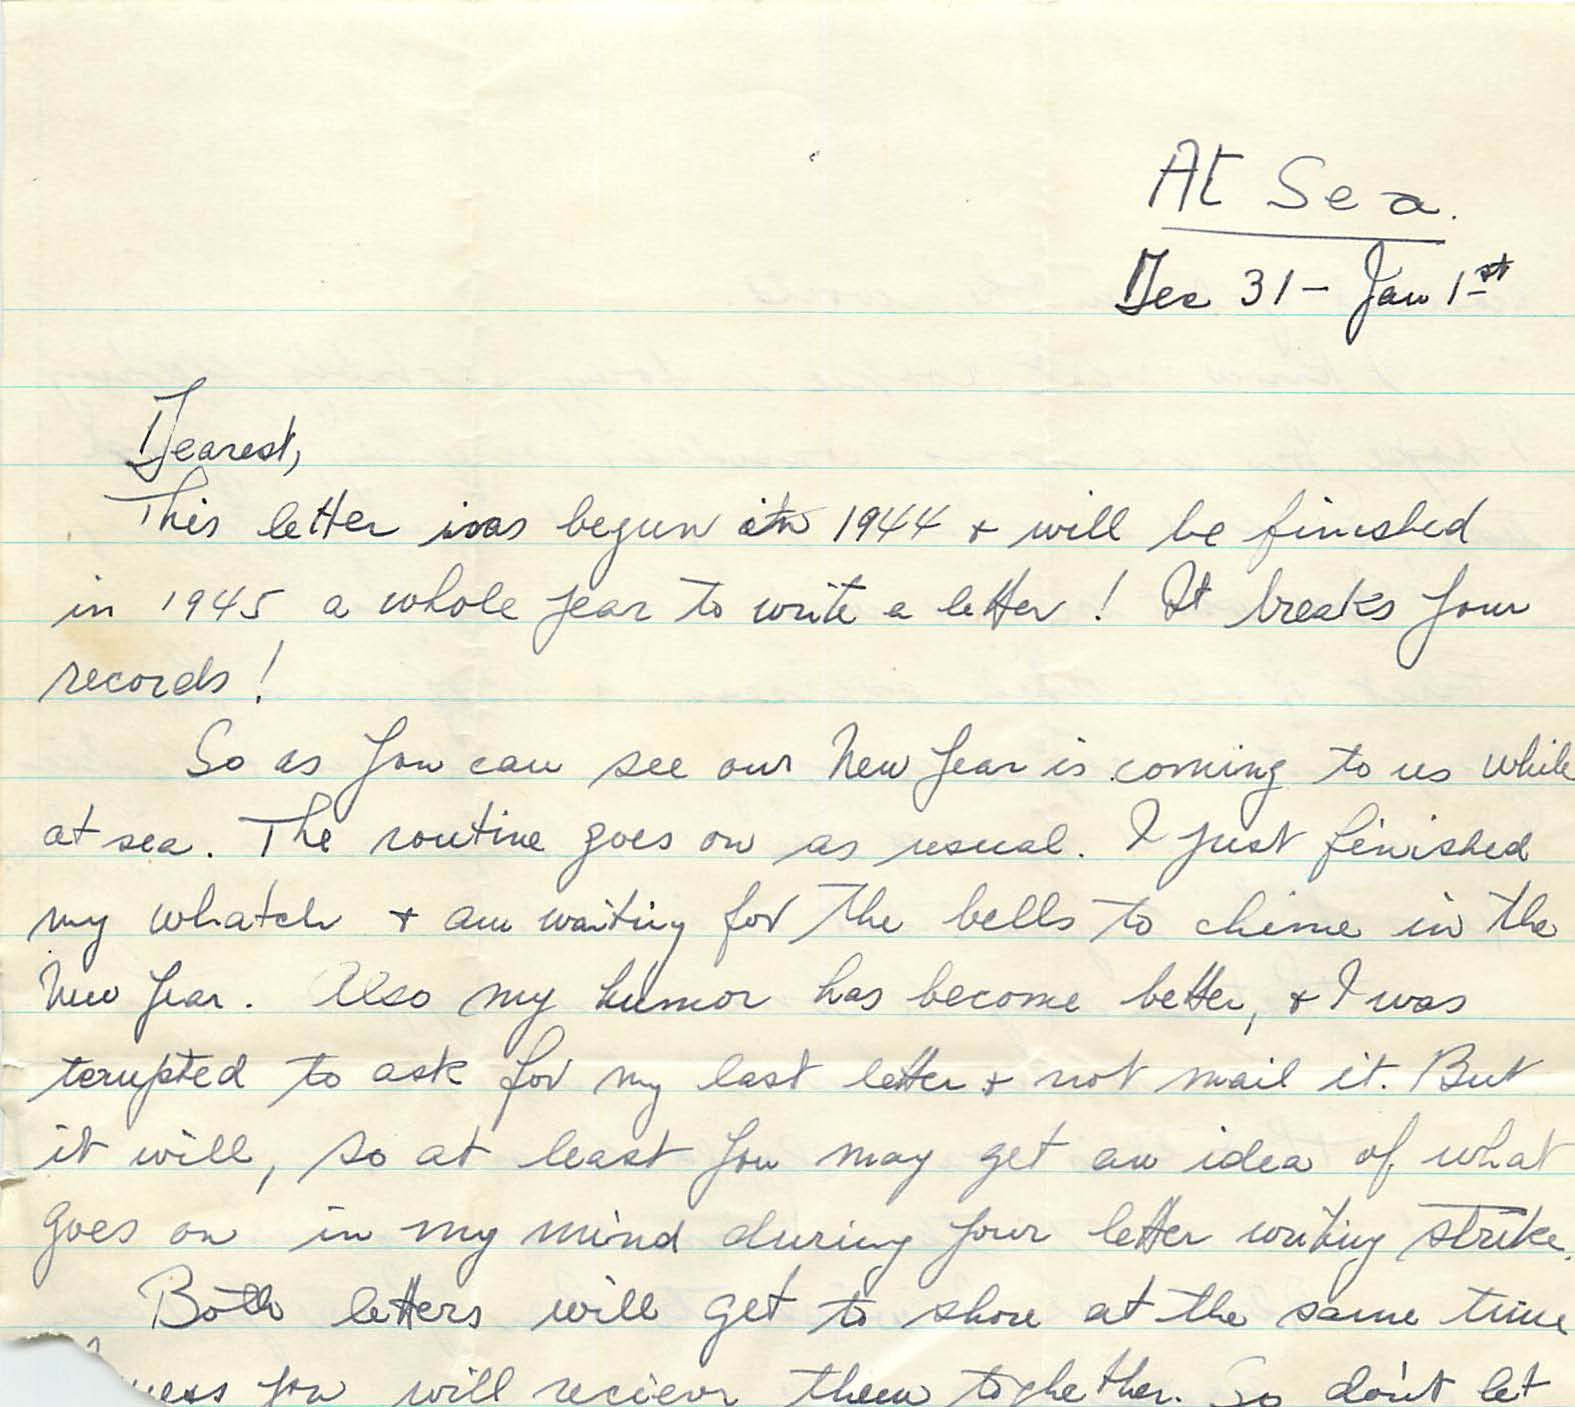 At Sea.
Dec 31 - Jan 1st
Dearest,
This letter was begun in 1944 & will be finished
in 1945 a whole year to write a letter! It breaks your
records!
So as you can see our New Year is coming to us while
at sea. The routine goes on as usual. I just finished
my whatch & am waiting for the bells to chime in the
New Year. Also my humor has become better, & I was
terupted to ask for my last letter & not mail it. But
it will, so at least you may get an idea of what
goes on in my mind during your letter writing strike.
Both letters will get to shore at the same time
you will recieve them toghether. So don't let